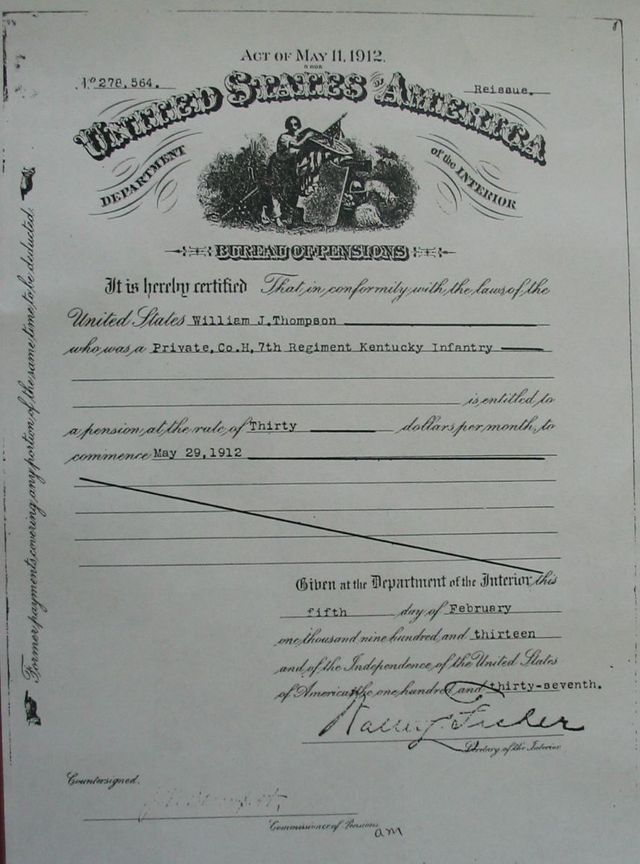 ACT OF MAY 11, 1912.
No 278,564.
Reissue.
UNITED STATES OF AMERICA
DEPARTMENT of the INTERIOR
BUREAU OF PENSIONS
It is hereby certified That in conformity with the laws of the
United States William J. Thompson
who was a Private, Co.H, 7th Regiment Kentucky Infantry
is entitled to
a pension at the rate of Thirty dollars per month, to
commence May 29, 1912
Given at the Department of the Interior this
fifth day of February
one thousand nine hundred and thirteen
and of the Independence of the United States
of America the one hundred and thirty-seventh.
Walter L. Fisher
Secretary of the Interior
Countersigned.
Commissioner of Pensions
am
Former payments covering any portion of the same time to be deducted.